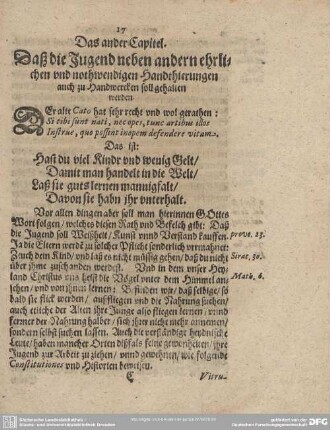 17
Das ander Capitel.
Daß die Jugend neben andern ehrli-
chen vnd nothwendigen Handthierungen
auch zu Handwercken soll gehalten
werden
DEr alte Cato hat sehr recht vnd wol gerathen:
Si tibi sunt nati, nec opes, tunc artibus illos
Instrue, quo possint inopem defendere vitam.
Das ist:
Hast du viel Kindr vnd wenig Gelt/
Damit man handelt in die Welt/
Laß sie guts lernen mannigfalt/
Davon sie habn ihr vnterhalt.
Vor allen dingen aber soll man hierinnen GOttes
Wort folgen/ welches diesen Rath vnd Befelch gibt: Daß
die Jugend soll Weißheit/ Kunst vnnd Verstand kauffen.
prove. 23.
Ja die Eltern werdē zu solcher Pflicht sonderlich vermahnet:
Zeuch dein Kind/ vnd laß es nicht müssig gehen/ daß du nicht
Sirac. 30.
über jhme zuschanden werdest. Vnd in dem vnser Hey-
land Christus vns heist die Vögel vnter dem Hümmel an-
Math. 6.
sehen/ vnd von ihnen lernen: Befinden wir/ daß selbige/ so
bald sie flick werden/ aufffliegen vnd die Nahrung suchen/
auch etliche der Alten ihre Junge also fliegen lernen/ vnnd
ferrner der Nahrung halber/ sich ihrer nicht mehr annemen/
sondern selbst suchen lassen. Auch die verständige heydnische
Leute/ haben mancher Orten dißfals feine gewonheiten/ ihre
Jugend zur Arbeit zu ziehen/ vnnd gewehnen/ wie folgende
Constitutiones vnd Historien beweisen.
C
Vitru-